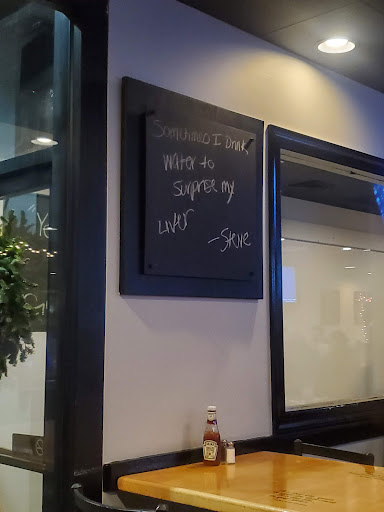 Sometimes I Drink
Water to
Surprise my
Liver
-Steve